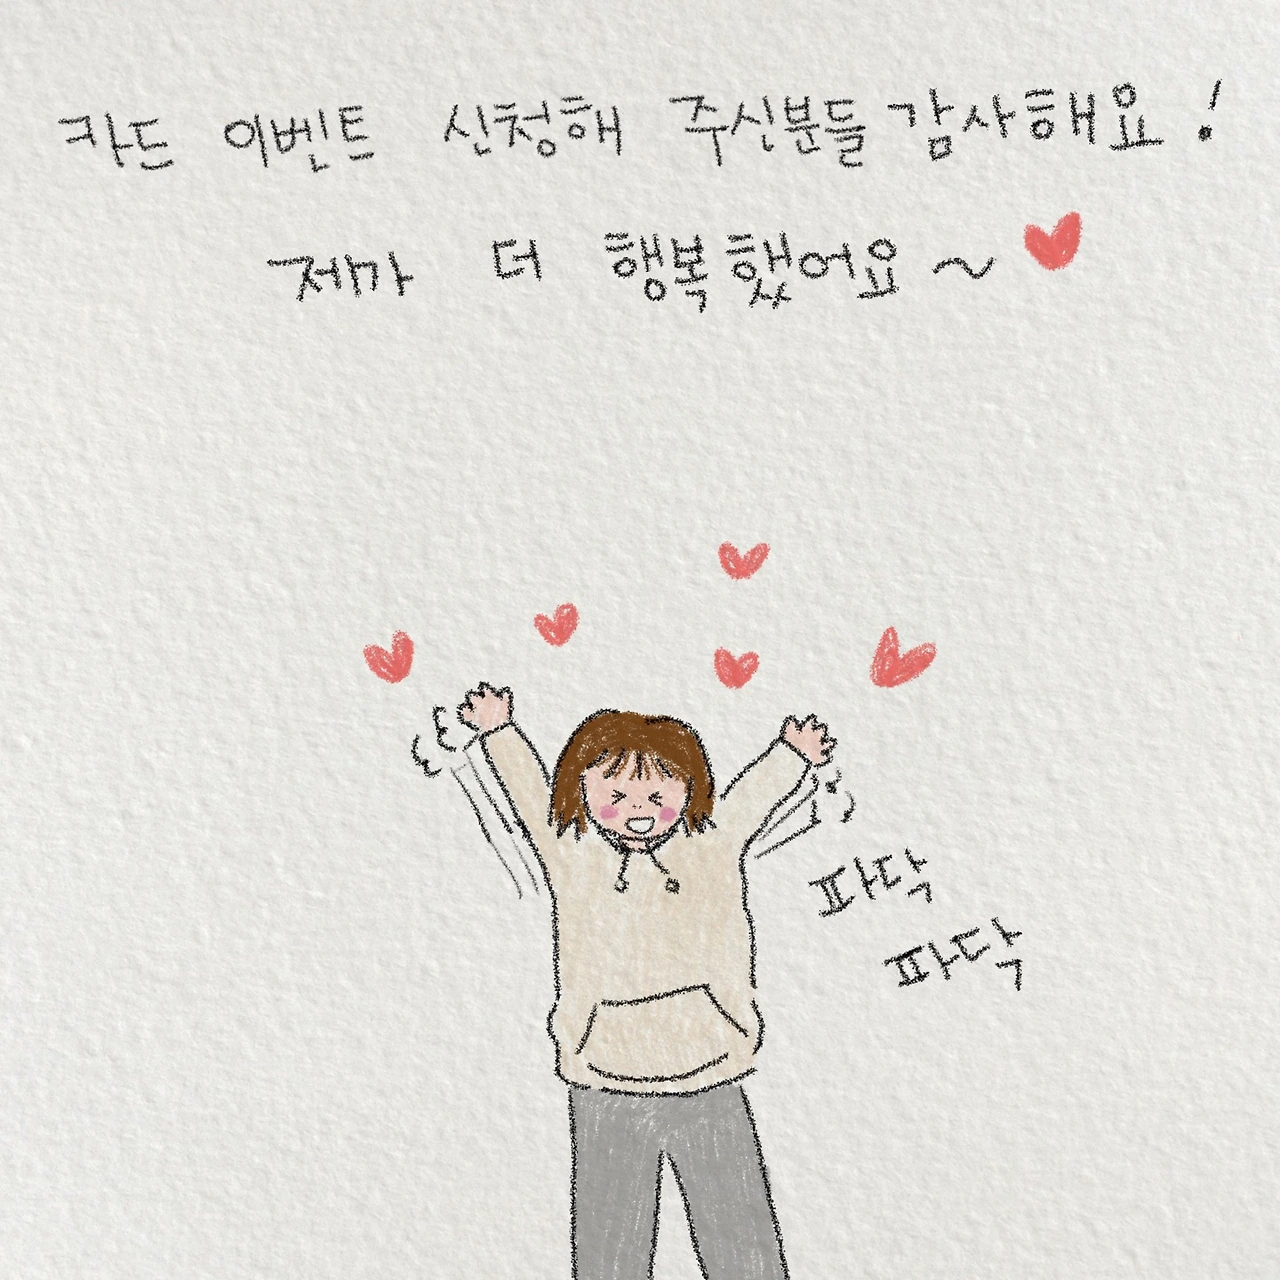 카드 이벤트 신청해 주신분들 감사해요!
제가 더 행복했어요~
파닥
파닥